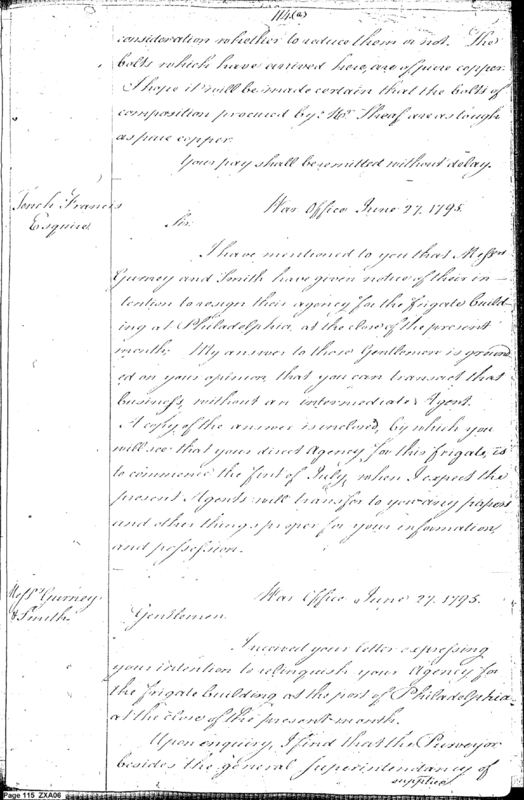 114(a)
consideration whether to reduce them or not. The
bolts which have arrived here, are of pure copper.
I hope it will be made certain that the bolts of
composition procured by Mr. Sheaf are as tough
as pure copper.
Your pay shall be remitted without delay.
Tench Francis
Esquire
War Office June 27. 1795.
Sir
I have mentioned to you that Messrs
Gurney and Smith have given notice of their in-
tention to resign their agency for the frigate build-
ing at Philadelphia, at the close of the present
month. My answer to those Gentlemen is ground
ed on your opinion, that you can transact that
business, without an intermediate Agent.
A copy of the answer is inclosed, by which you
will see that your direct Agency for this frigate, is
to commence the first of July, when I expect the
present Agents will transfer to you any papers
and other things proper for your information
and possession.
Messrs Gurney
& Smith
War Office June 27. 1795.
Gentlemen.
I received your letter expressing
your intention to relinquish your Agency for
the frigate building at the port of Philadelphia
at the close of the present month.
Upon enquiry, I find that the Purveyor
besides the general Superintendancy of
supplies
Page 115 ZXA06